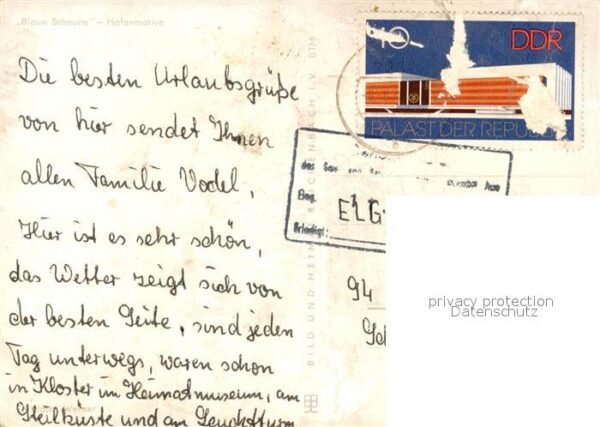 „Blaue Scheune" – Hafenmotive
Die besten Urlaubsgrüße
von hier sendet Ihnen
allen Familie Vodel,
Hier ist es sehr schön,
das Wetter zeigt sich von
der besten Seite, sind jeden
Tag unterwegs, waren schon
in Kloster im Heimatmuseum, am
Steilküste und am Leuchtturm
Werner
BILD UND HEIMAT REICHENBACH I.V. BTM
10
DDR
PALAST DER REPUBLIK
des
Eing.
ELG
Erledigt:
94
privacy protection
Datenschutz